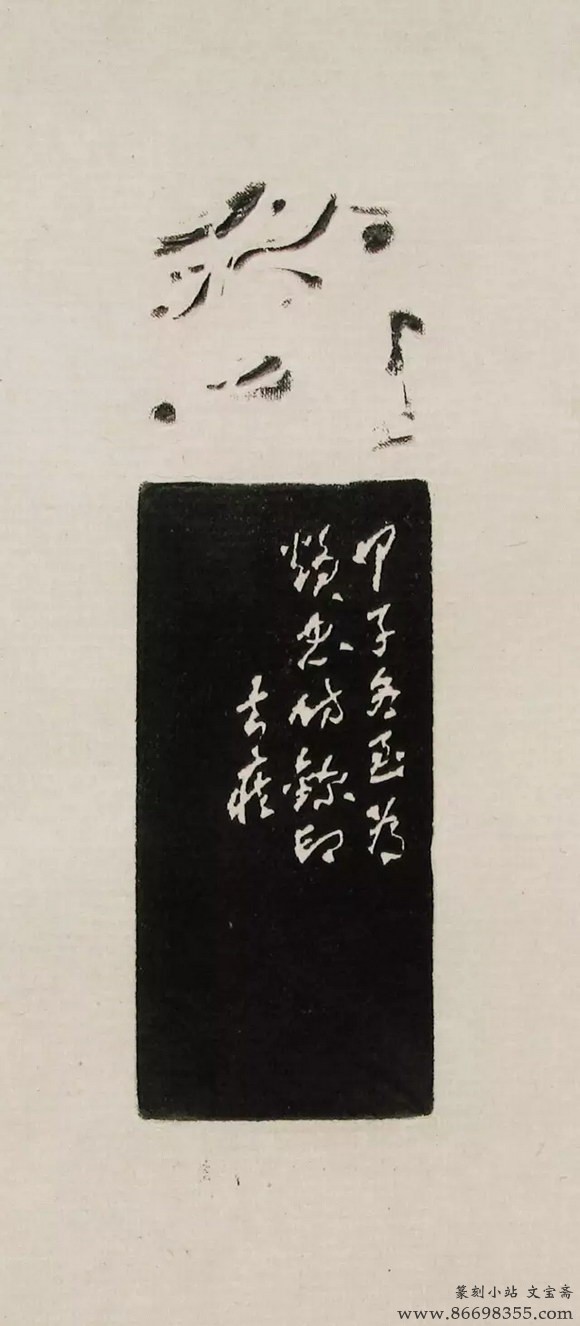 甲子冬至為
忠仿鉨印
去疾
篆刻小站 文宝斋
www.86698355.com